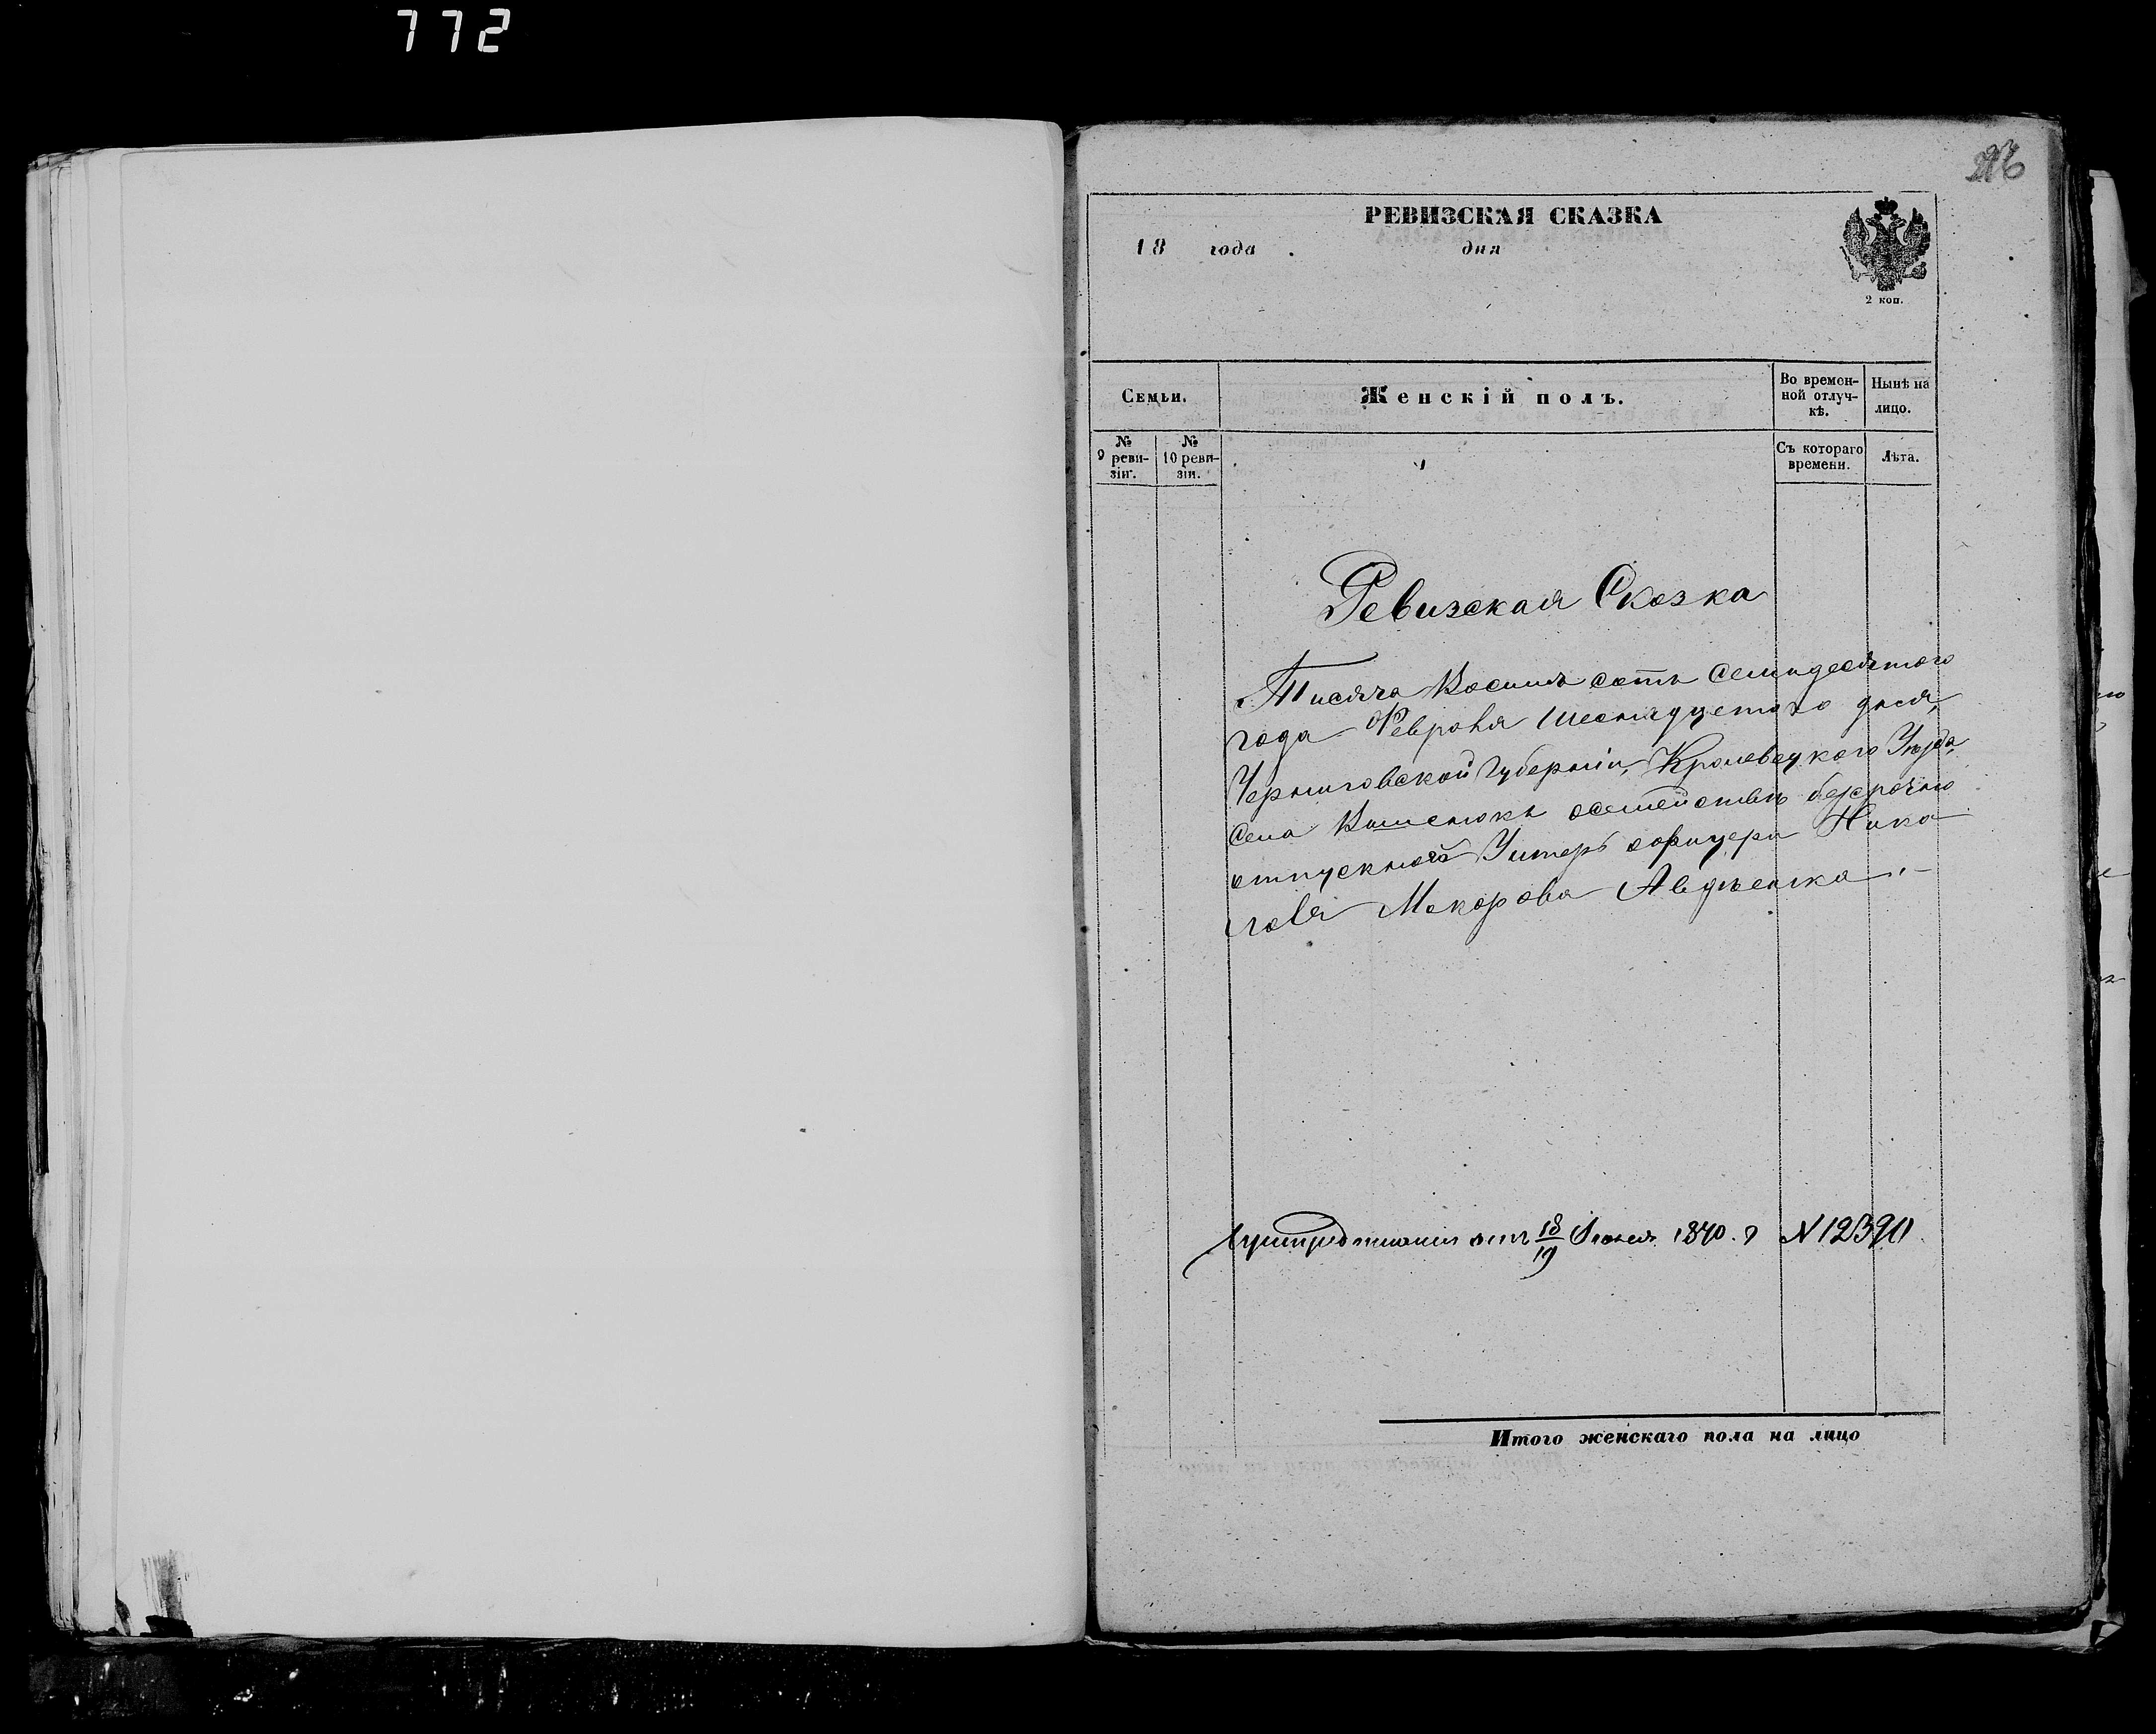 772
РЕВИЗСКАЯ СКАЗКА
18 года дня
2 коп.
Семьи.
Женскій полъ.
Во времен-
ной отлуч-
кѣ.
Нынѣ на
лицо.
№
9 реви-
зіи.
№
10 реви-
зіи.
Съ котораго
времени.
Лѣта.
Ревизская Сказка
Тисяча Восимъ сотъ Семидесятого
года Февраля Шеснадцетого дня,
Черниговской Губерніи, Кролевецкого Уѣзда,
Села семействѣ безсрочно
отпускной Унтеръ офицера Нико
лая Макарова Авдѣенка
отъ 18/19 Июня 1870. г N 12390.
Итого женскаго пола на лицо